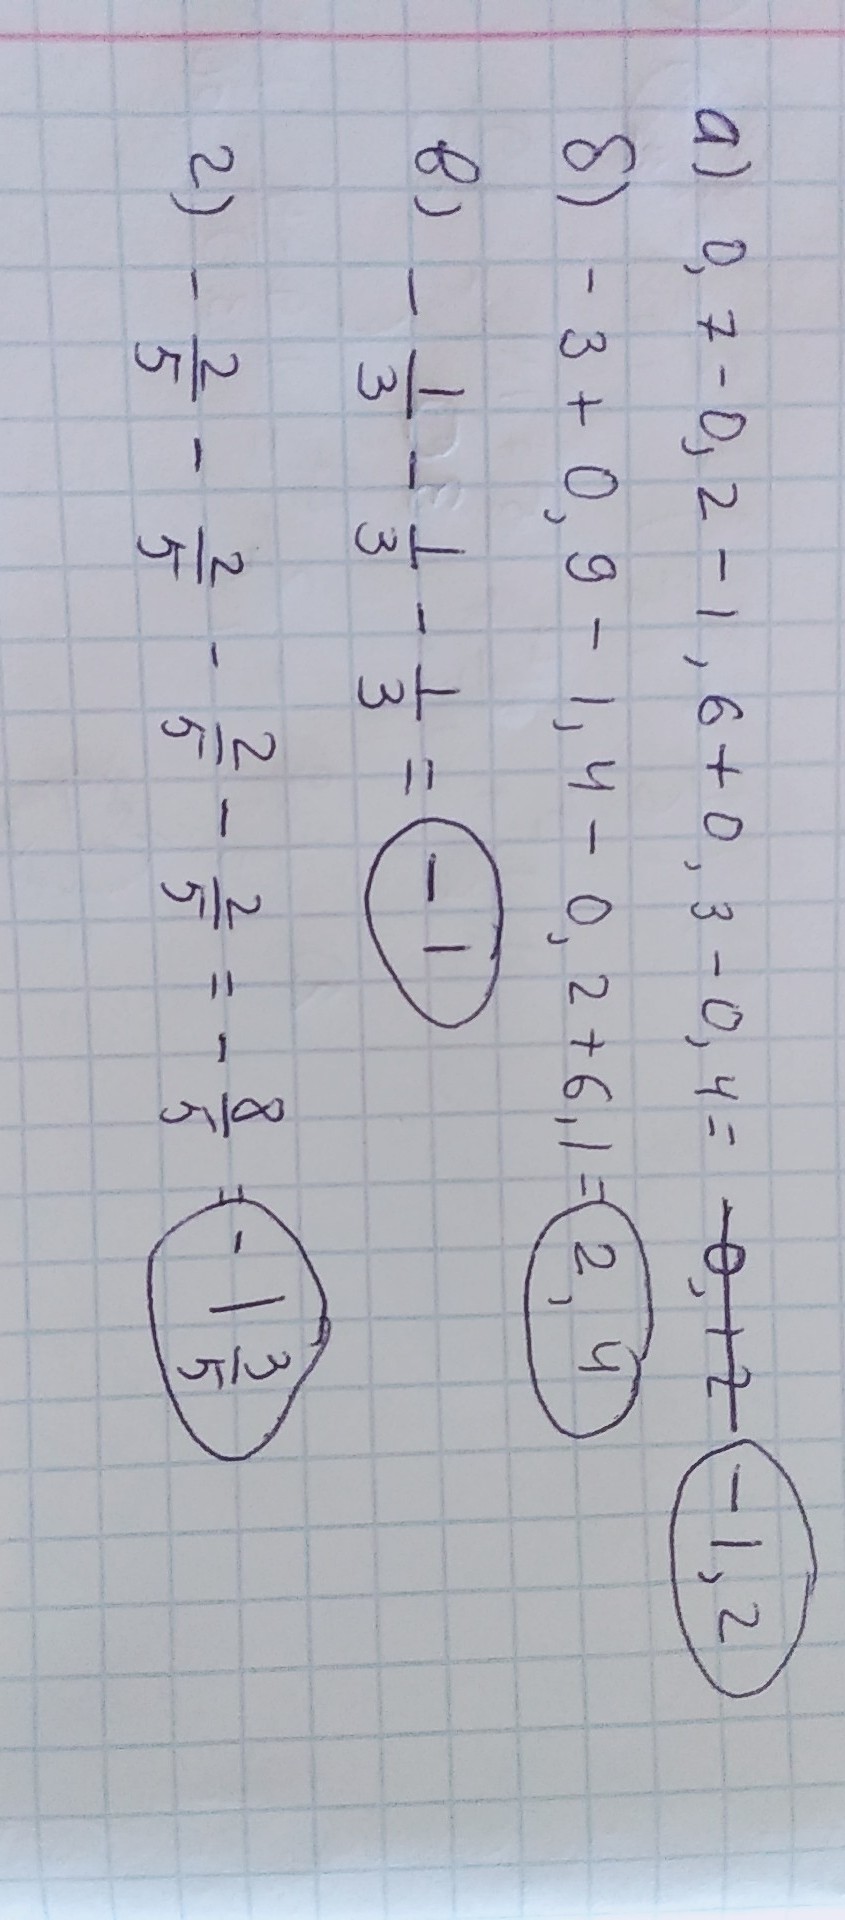 а) 0,7 - 0,2 - 1,6 + 0,3 - 0,4 = 0,12 -1,2
б) - 3 + 0,9 - 1,4 - 0,2 + 6,1 = 2,4
в) - 1/3 - 1/3 - 1/3 = -1
г) - 2/5 - 2/5 - 2/5 - 2/5 = - 8/5 = - 1 3/5